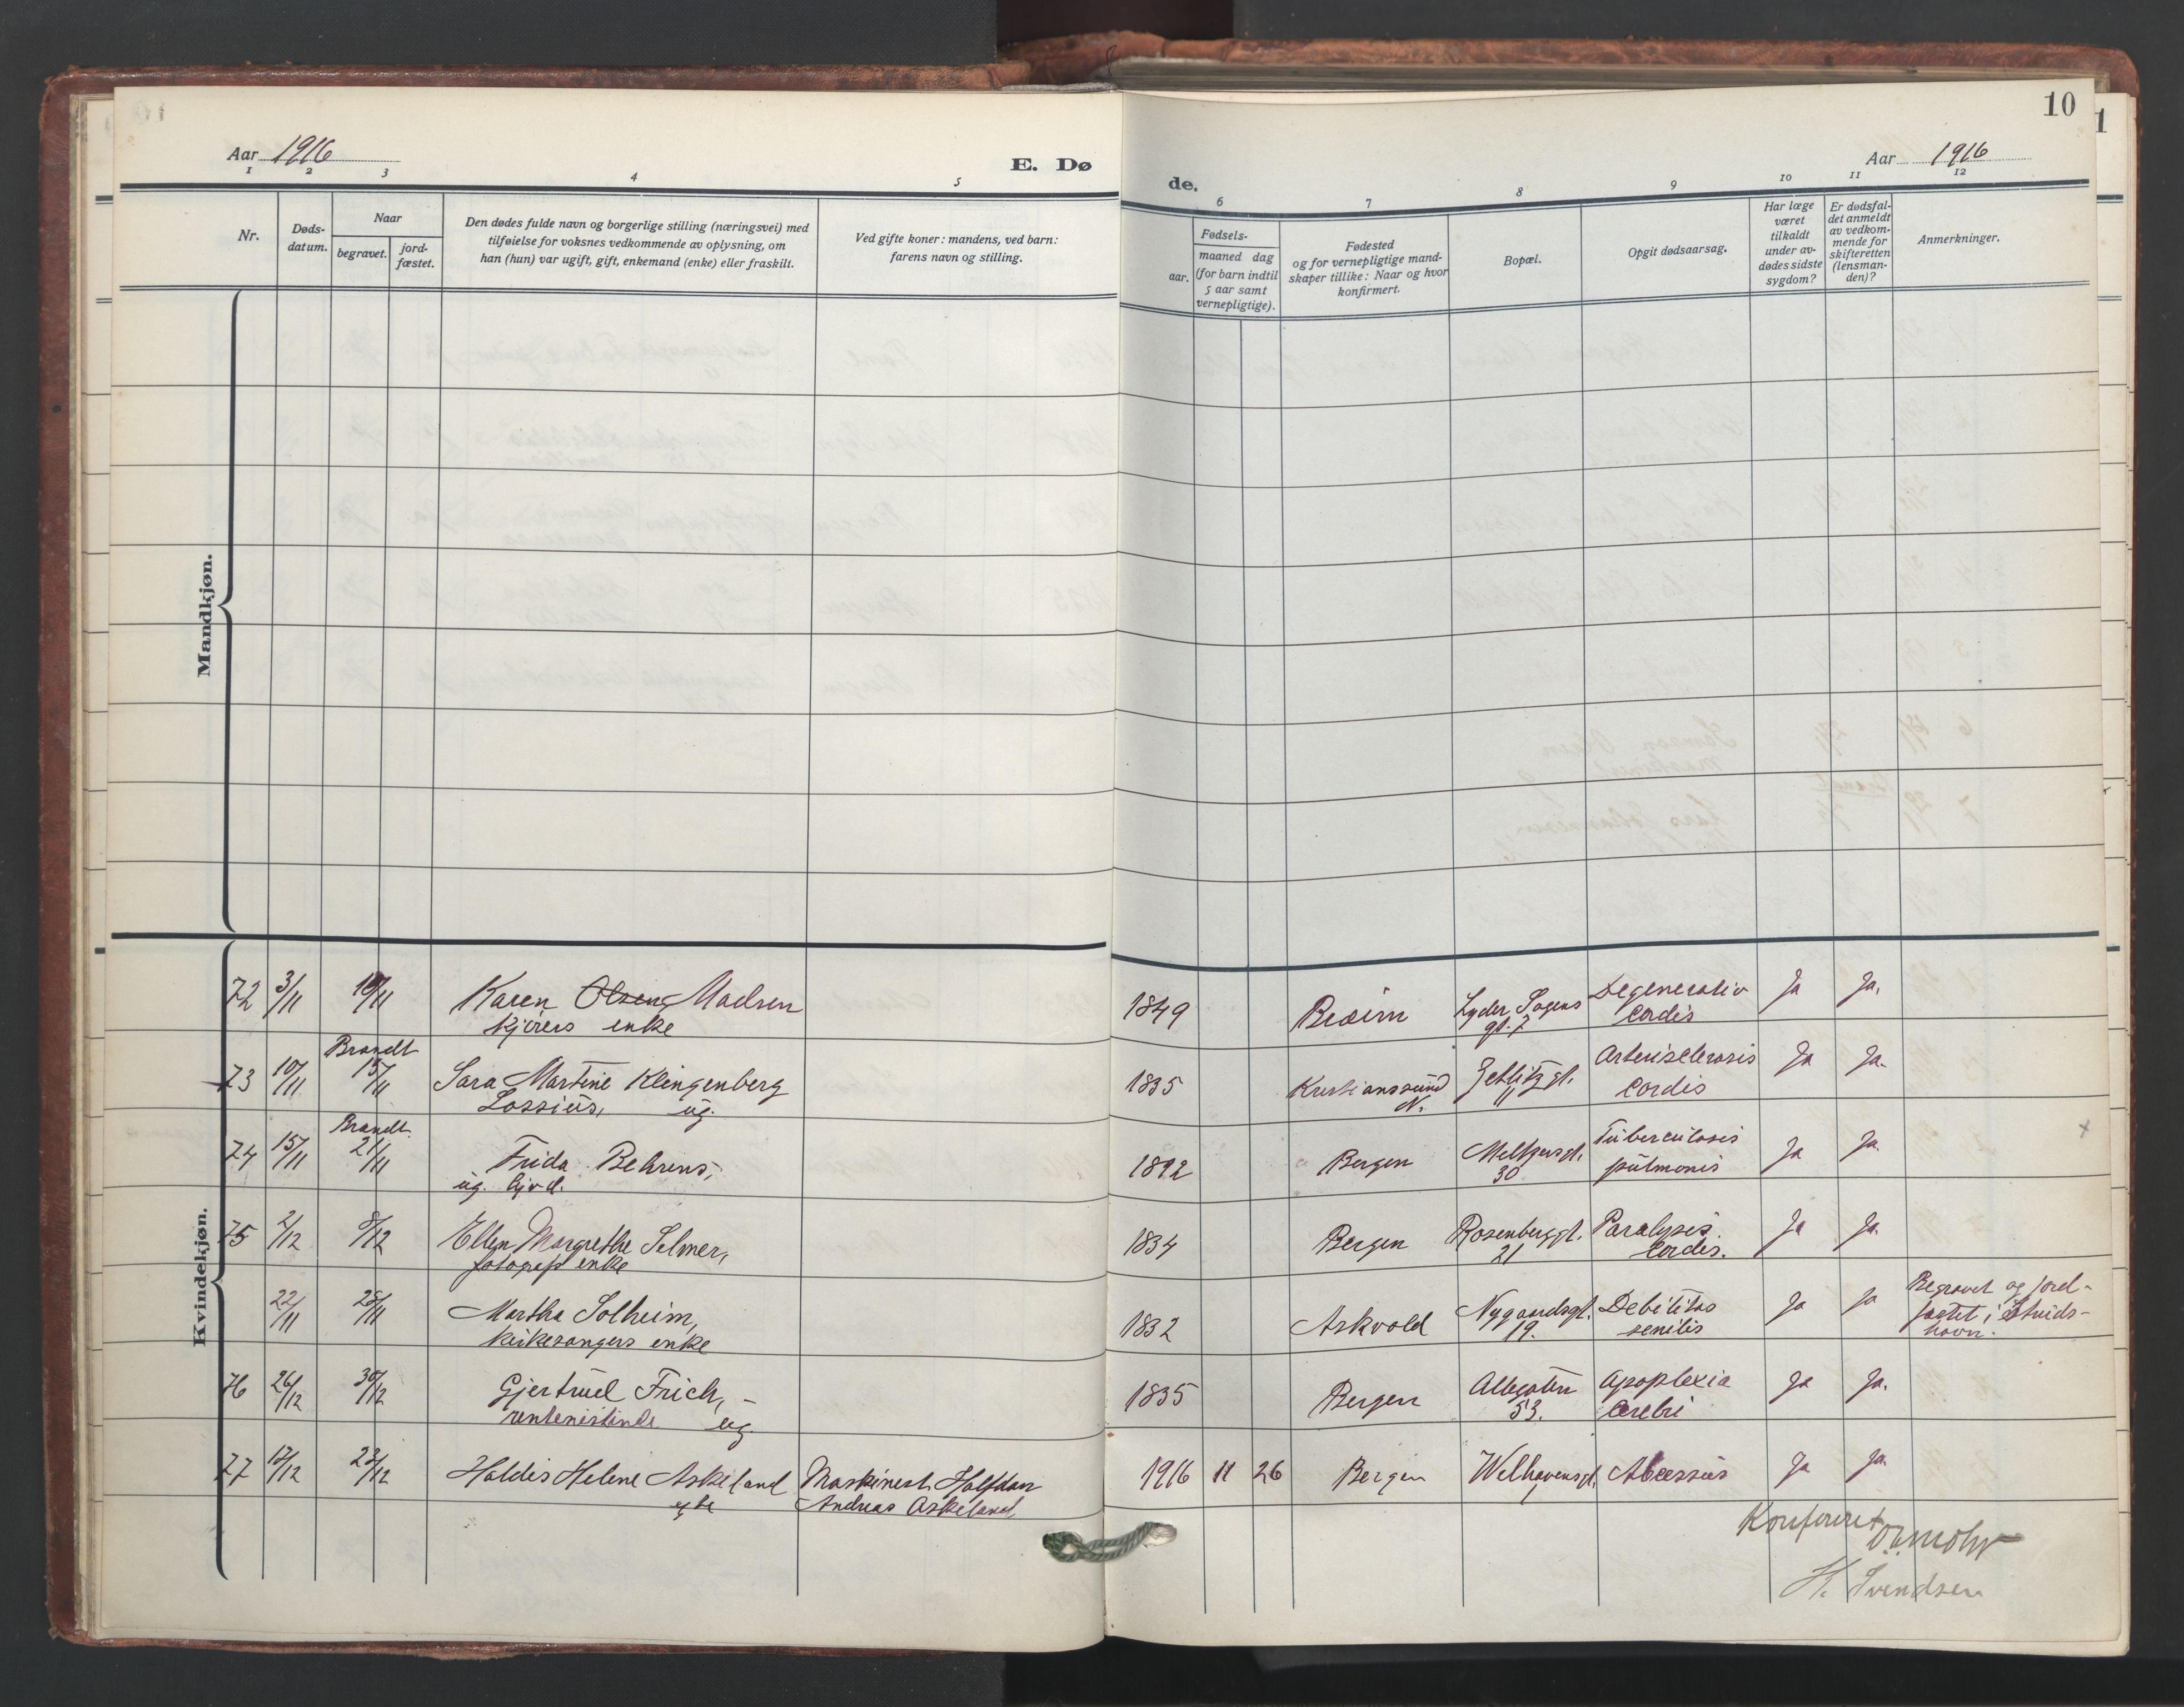 10
Aar 1916
E. Dø
de.
Aar 1916
1 2 3 4 5 6 7 8 9 10 11 12
Nr.
Døds-
datum.
Naar
begravet.
jord-
fæstet.
Den dødes fulde navn og borgerlige stilling (næringsvei) med
tilføielse for voksnes vedkommende av oplysning, om
han (hun) var ugift, gift, enkemand (enke) eller fraskilt.
Ved gifte koner: mandens, ved barn:
farens navn og stilling.
Fødsels-
aar.
maaned dag
(for barn indtil
5 aar samt
vernepligtige).
Fødested
og for vernepligtige mand-
skaper tillike: Naar og hvor
konfirmert.
Bopæl.
Opgit dødsaarsag.
Har læge
været
tilkaldt
under av-
dødes sidste
sygdom?
Er dødsfal-
det anmeldt
av vedkom-
mende for
skifteretten
(lensman-
den)?
Anmerkninger.
Mandkjøn.
Kvindekjøn.
72 3/11 10/11 Karen Olsen Madsen 1849 Lyder Sagens Degenerativ Ja Ja.
kjørers enke gt. 7 Cordis
Brandt
73 10/11 15/11 Sara Martine Klingenberg 1835 Kristianssund Zetlitzgt. Arterisclerosis Ja Ja.
Lossius, ug. N. 11 Cordis
Brandt
74 15/11 21/11 Frida Behrens, 1892 Bergen Meltzersgt. Tuberculosis Ja Ja. +
ug. 30 pulmonis
75 2/12 8/12 Ellen Margrethe Selmer, 1834 Bergen Rosenberggt. Paralysis Ja Ja.
fotograf enke 21 Cordis.
22/11 28/11 Martha Solheim, 1832 Askvold Nygaardsgt. Debilitas Ja Ja Begravet og jord-
kirkesangers enke 19. senilis fæstet i
havn.
76 26/12 30/12 Gjertrud Frich, 1835 Bergen Allegaten Apoplexia Ja Ja.
rentenistinde ug. 53. Cerebri
77 17/12 23/12 Haldis Helene Askeland Maskinest. Halfdan 1916 11 26 Bergen Welhavensgt. Abcessus Ja Ja.
Andreas Askeland
Konfereret
H. Svendsen